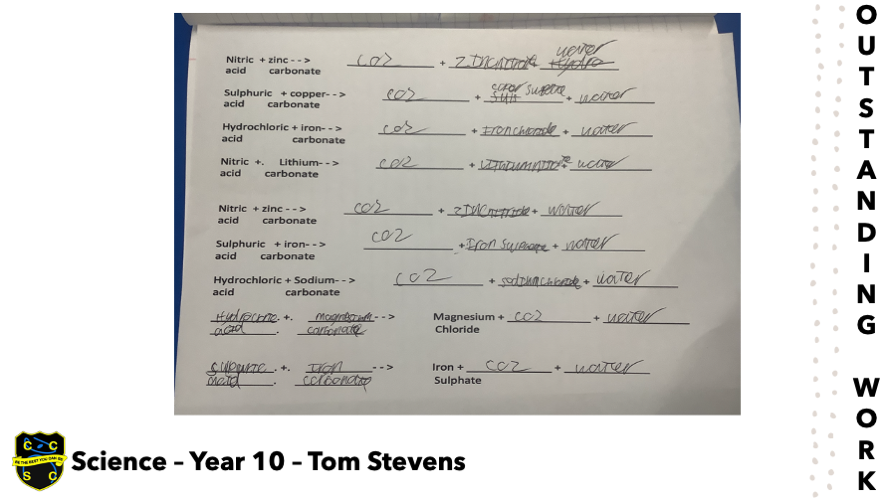 Nitric + zinc - - > CO2 + zinc nitrate water
acid carbonate
Sulphuric + copper- - > CO2 + coper Sulphate + water
acid carbonate
Hydrochloric + iron- - > CO2 + Iron chloride + water
acid carbonate
Nitric +. Lithium- - > CO2 + Lithium nitrate water
acid carbonate
Nitric + zinc - - > CO2 + zinc nitrate + water
acid carbonate
Sulphuric + iron- - > CO2 + Iron Sulphate + water
acid carbonate
Hydrochloric + Sodium- - > CO2 + sodium chloride + water
acid carbonate
+. - - > Magnesium + CO2 + water
acid . carbonate Chloride
+. Iron - - > Iron + CO2 + water
. carbonate Sulphate
C Z C
BE THE BEST YOU CAN BE
S C
Science – Year 10 – Tom Stevens
OUTSTANDING WORK